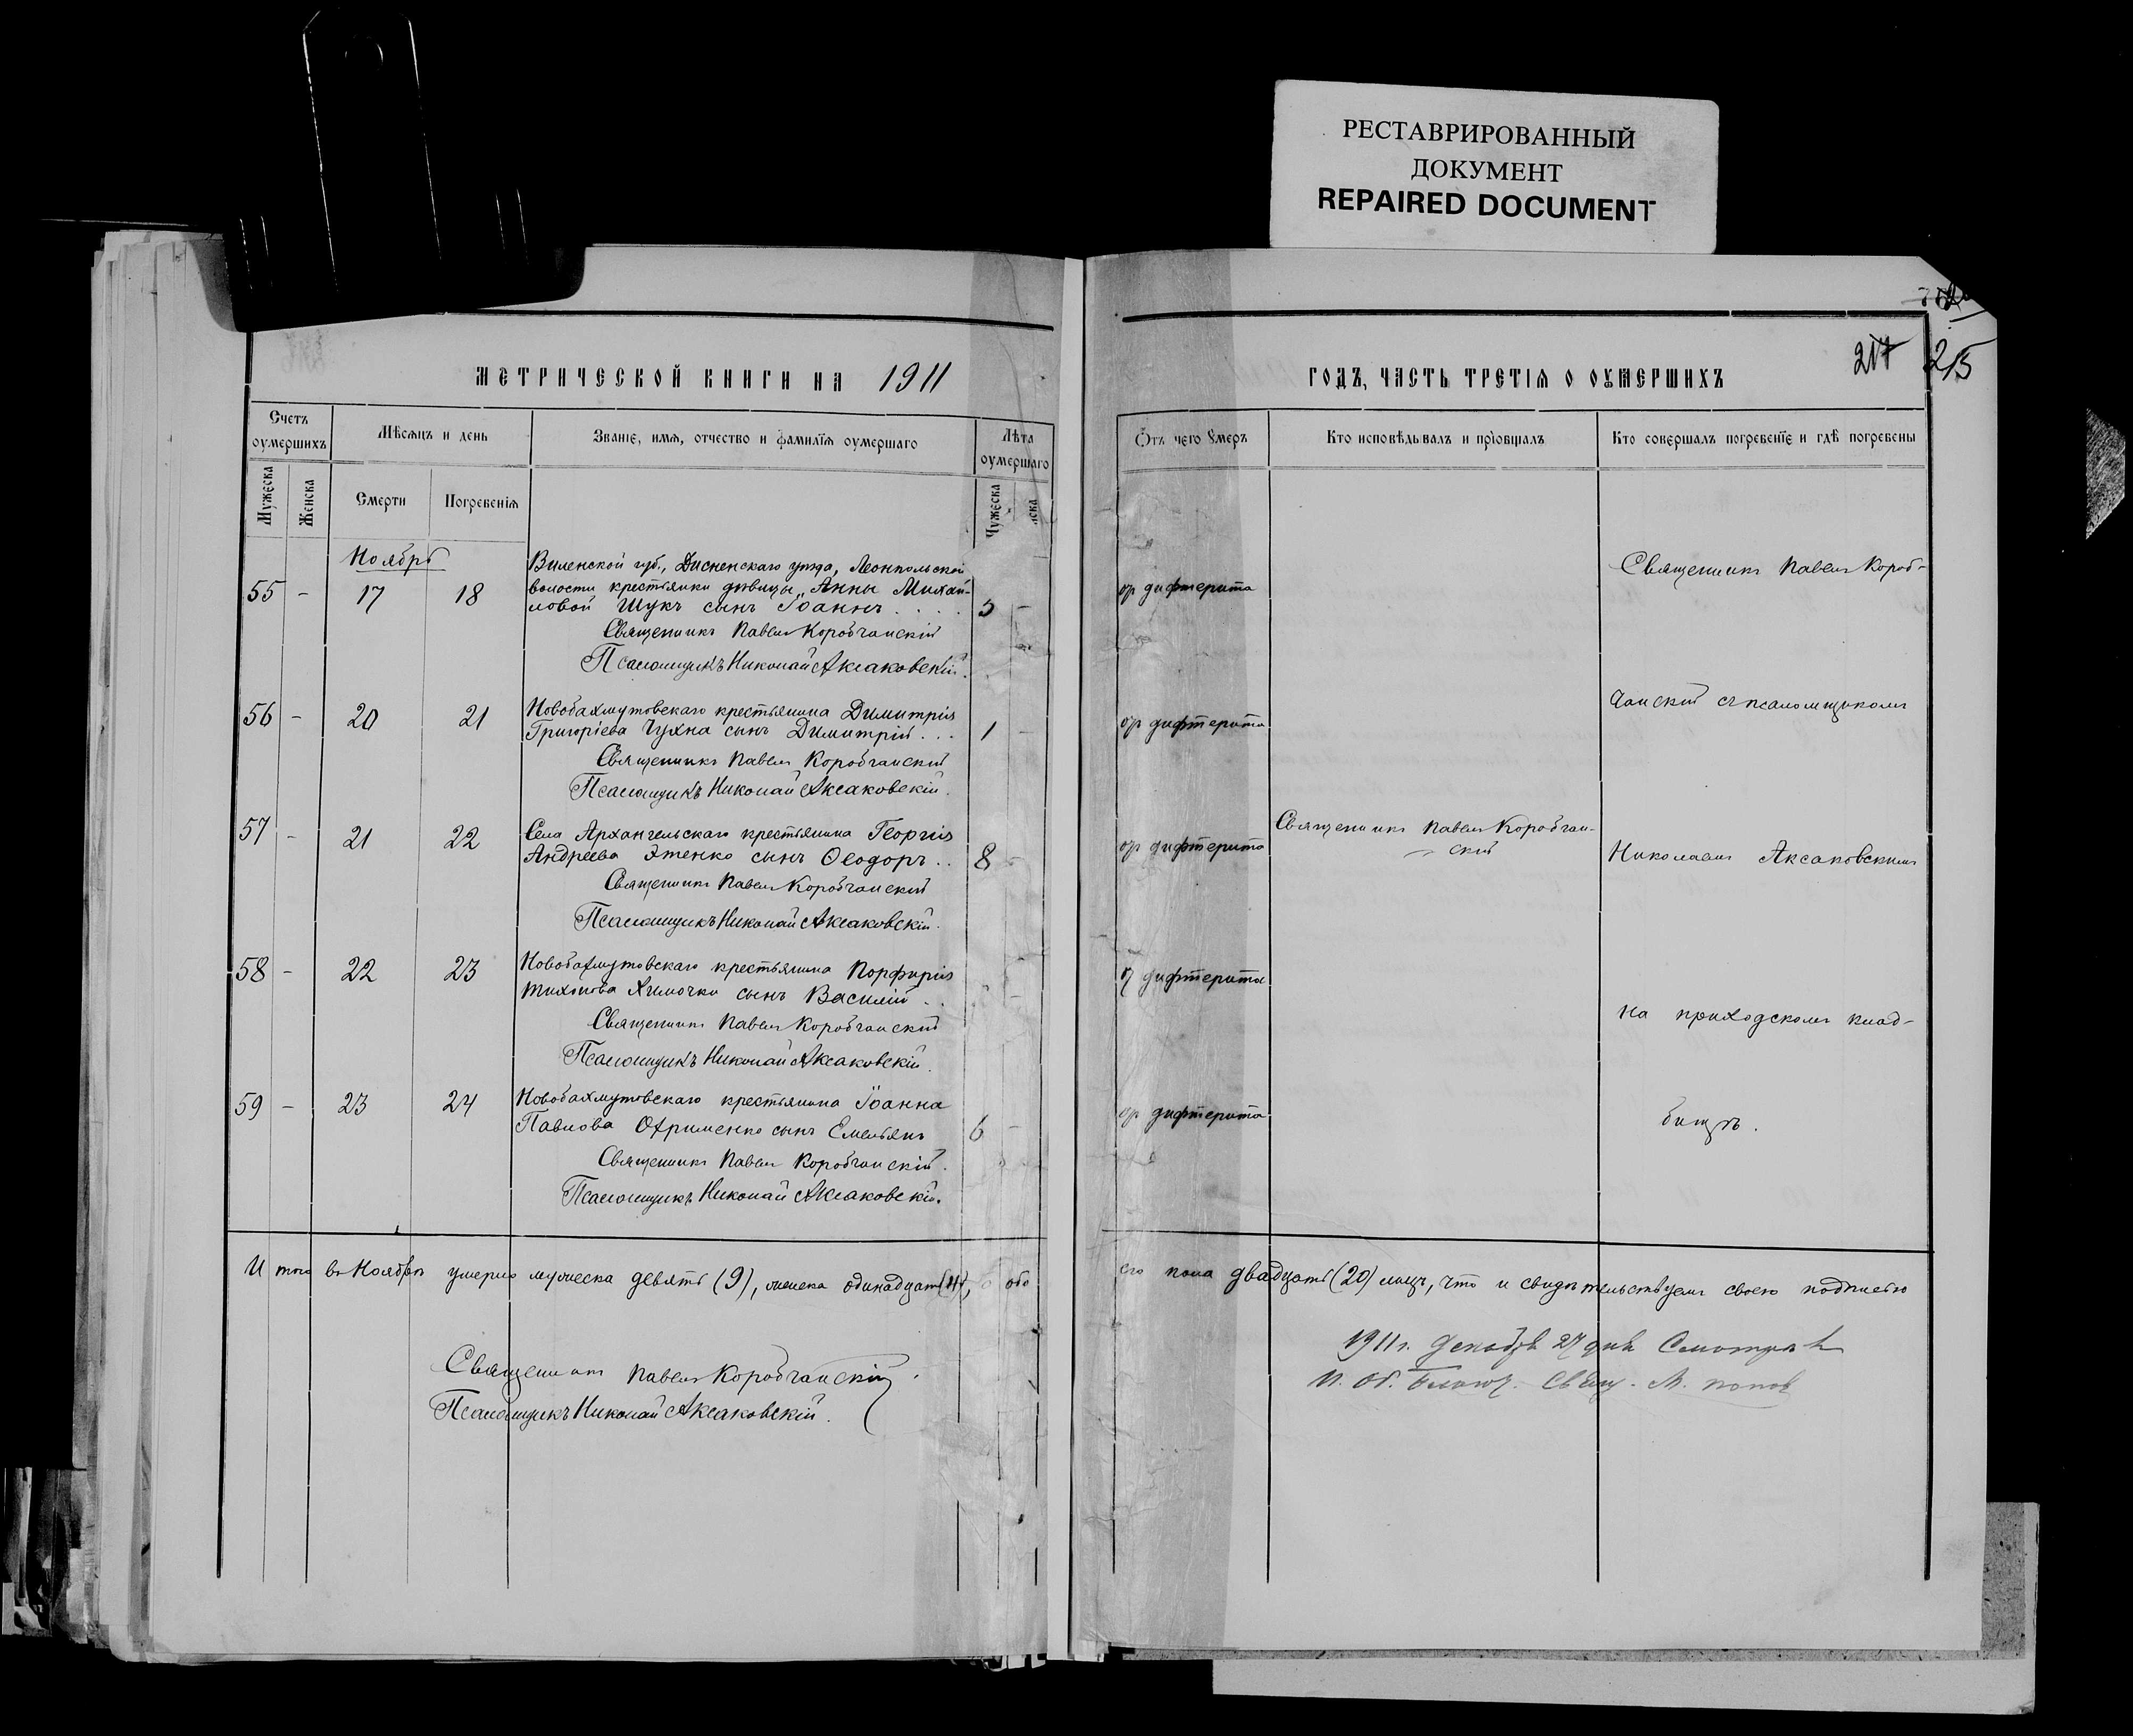 РЕСТАВРИРОВАННЫЙ
ДОКУМЕНТ
REPAIRED DOCUMENT
МЕТРИЧЕСКОЙ КНИГИ НА 1911
Счетъ оумершихъ
Мѣсяцъ и день
Званіе, имя, отчество и фамилія оумершаго
Лѣта оумершаго
Мужеска
Женска
Смерти
Погребенія
Мужеска
Ноябрь
55 - 17 18 Виленской губ., Дисненскаго уѣзда, Леонпольской
волости крестьянки дѣвицы Анны Михай-
ловой Шукъ сынъ Іоаннъ . . . . 5 -
Священникъ Павелъ Коробчанскій
Псаломщикъ Николай Аксаковскій.
56 - 20 21 Новобахмутовскаго крестьянина Димитрія
Григоріева Чухна сынъ Димитрій . . . 1 -
Священникъ Павелъ Коробчанскій
Псаломщикъ Николай Аксаковскій.
57 - 21 22 Села Архангельскаго крестьянина Георгія
Андреева Этенко сынъ Ѳеодоръ . . 8 -
Священникъ Павелъ Коробчанскій
Псаломщикъ Николай Аксаковскій.
58 - 22 23 Новобахмутовскаго крестьянина Порфирія
Тихонова Химочки сынъ Василій . .
Священникъ Павелъ Коробчанскій
Псаломщикъ Николай Аксаковскій.
59 - 23 24 Новобахмутовскаго крестьянина Іоанна
Павлова Охрименко сынъ Емельянъ 6 -
Священникъ Павелъ Коробчанскій.
Псаломщикъ Николай Аксаковскій.
Итого въ Ноябрѣ умерло мужеска девять (9), женска одинадцать (11), а обо
Священникъ Павелъ Коробчанскій.
Псаломщикъ Николай Аксаковскій.
217 215
ГОДЪ, ЧАСТЬ ТРЕТІЯ О ОУМЕРШИХЪ
Отъ чего умеръ
Кто исповѣдывалъ и пріобщалъ
Кто совершалъ погребеніе и гдѣ погребены
Священникъ Павелъ Короб-
от дифтерита
чанский съ псаломщикомъ
от дифтерита
Священникъ Павелъ Коробчан-
ский
от дифтерита
Николаемъ Аксаковскимъ
от дифтерита
на приходскомъ клад-
от дифтерита
бищѣ.
его пола двадцать (20) лицъ, что и свидѣтельствуемъ своею подписью
1911 г. Декабря 27 дня Смотрѣлъ
И. об. Благоч. Свящ. М. Попов